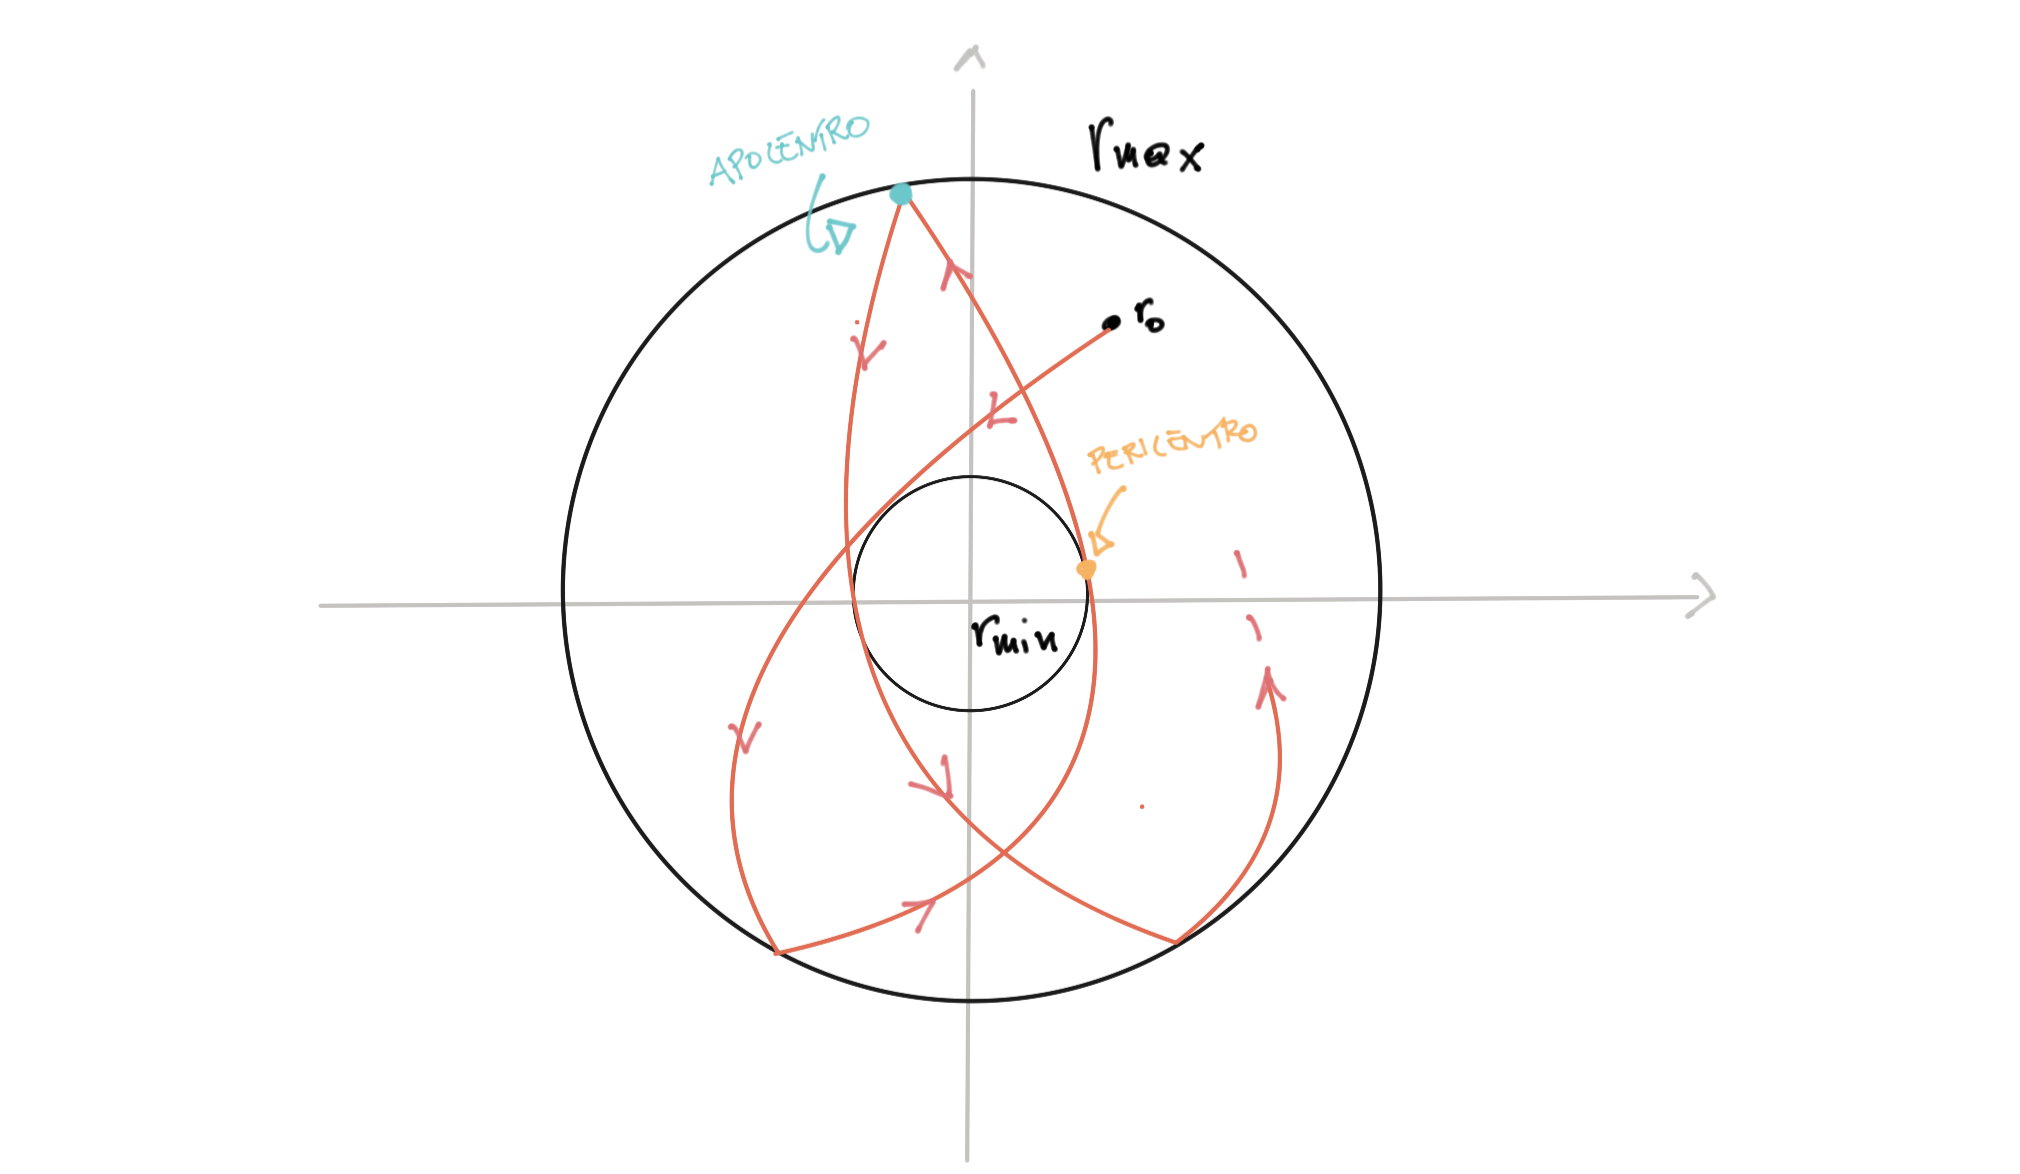 APOCENTRO
rmax
ro
PERICENTRO
rmin